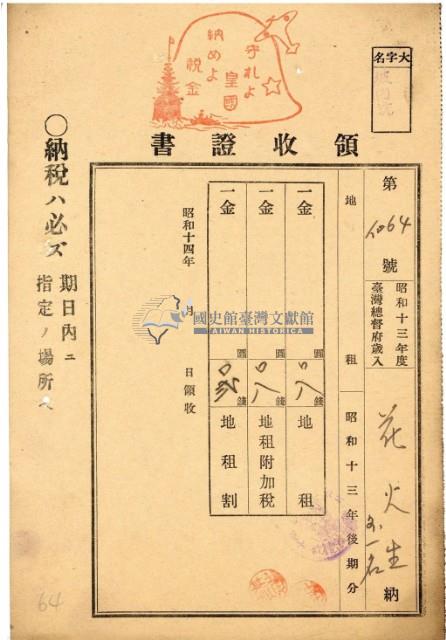 守れよ
皇國
納めよ
税金
大字名
領收證書
第 64 號
昭和十三年度
臺灣總督府歲入
花火生 外一名 納
地租 昭和十三年後期分
一金 圓 〇八錢 地租
一金 圓 〇八錢 地租附加稅
一金 圓 〇弐錢 地租割
昭和十四年 月 日領收
〇納稅ハ必ズ
期日內ニ
指定ノ場所へ
國史館臺灣文獻館
TAIWAN HISTORICA
64